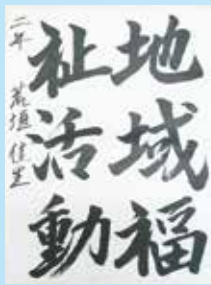 地域福
祉活動
二年 荒垣佳生